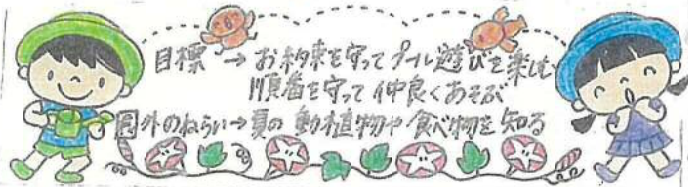 目標→お約束を守ってプール遊びを楽しむ
順番を守って仲良くあそぶ
園外のねらい→夏の動植物や食べ物を知る